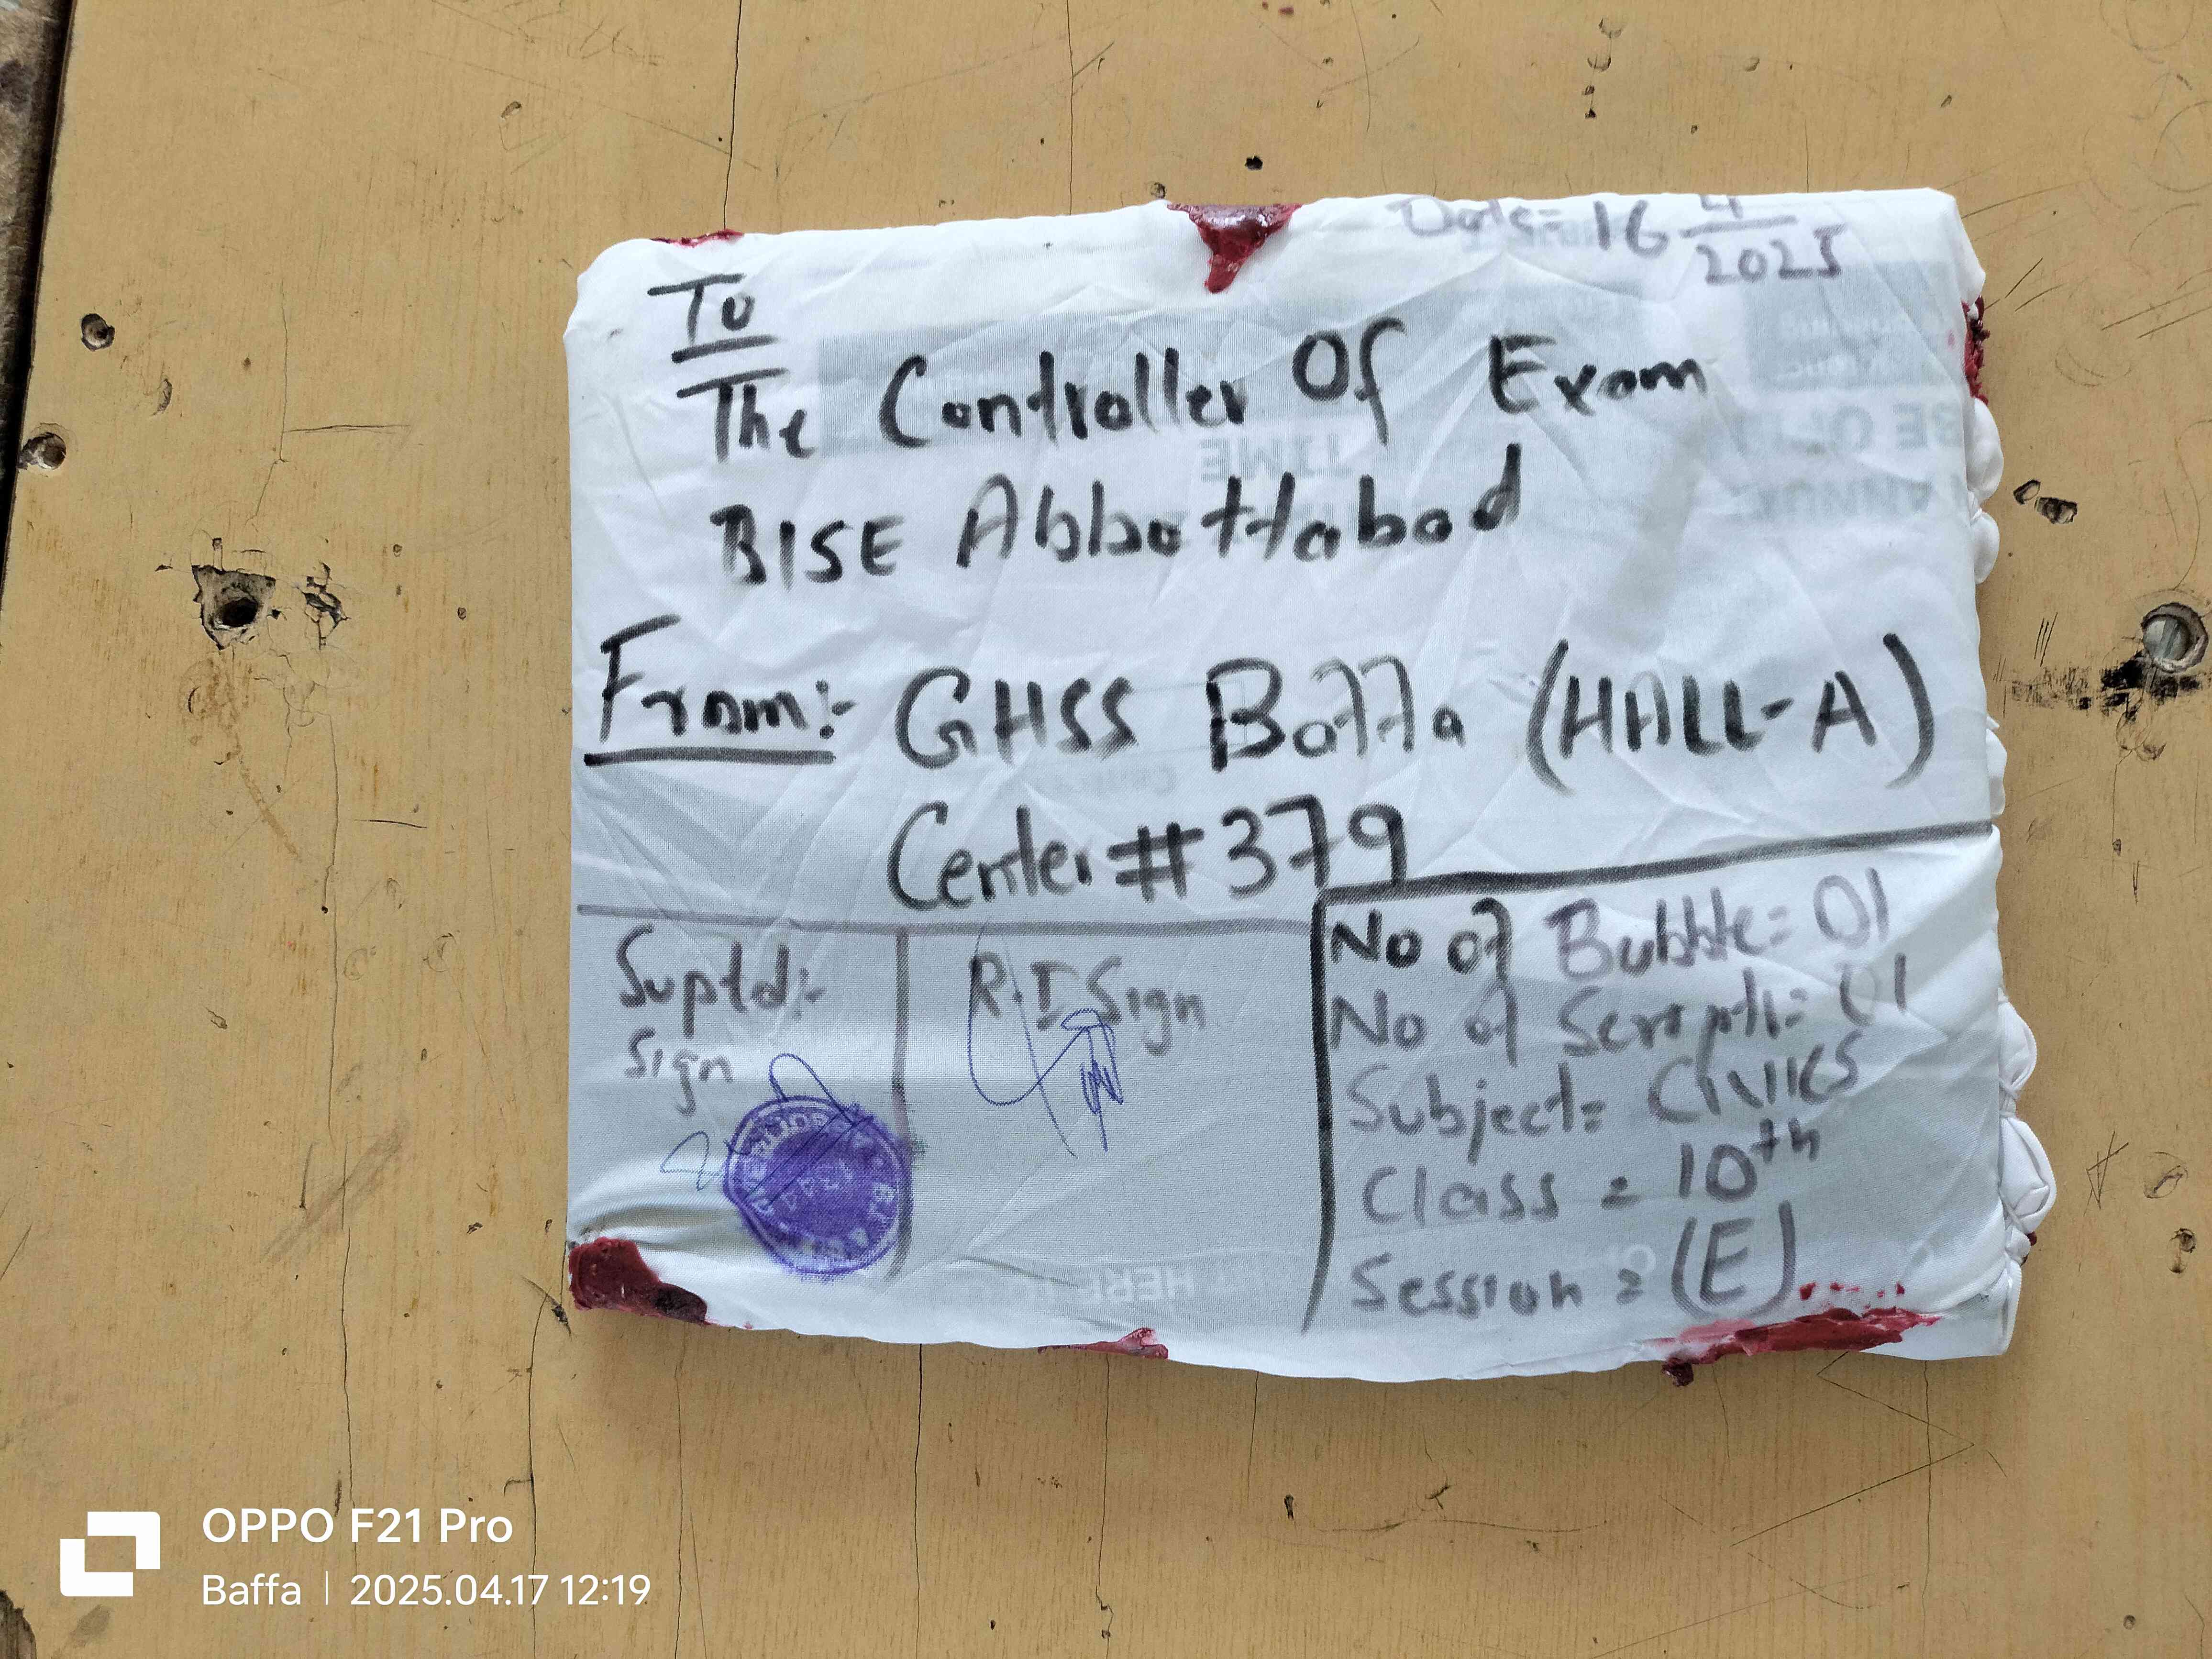 Date= 16 4/2025
To
The Controller Of Exam
BISE Abbottabad
From:- GHSS Baffa (HALL-A)
Center # 379
Suptd:-
Sign
R.I Sign
No of Bubble= 01
No of Script= 01
Subject= CIVICS
Class = 10th
Session = (E)
TIME
HERE
OPPO F21 Pro
Baffa | 2025.04.17 12:19